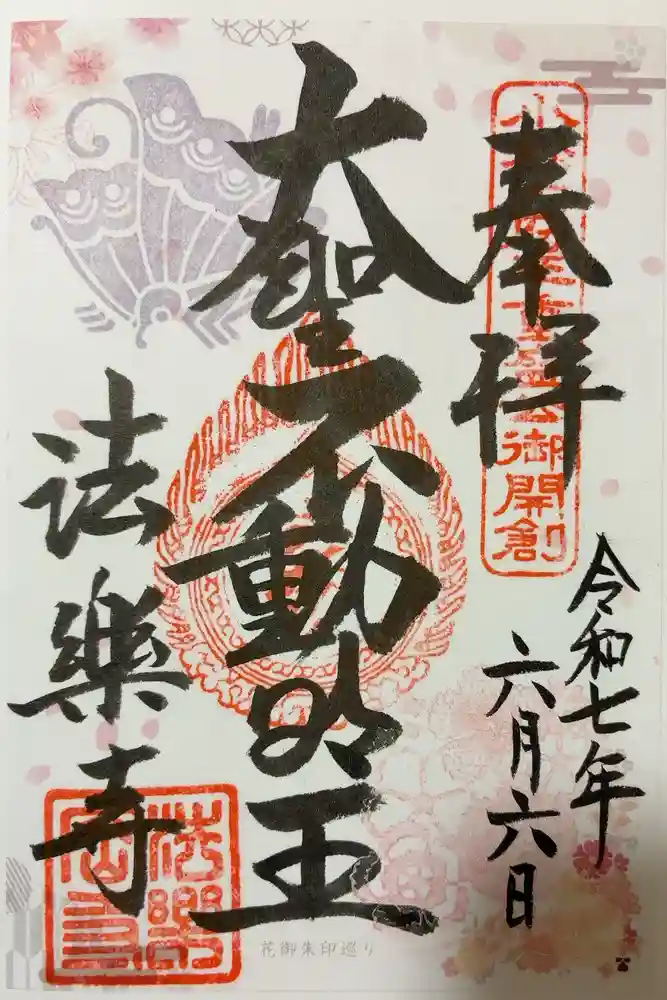 奉拝
重盛公御開創
令和七年
六月六日
大聖不動明王
法樂寺
花御朱印巡り